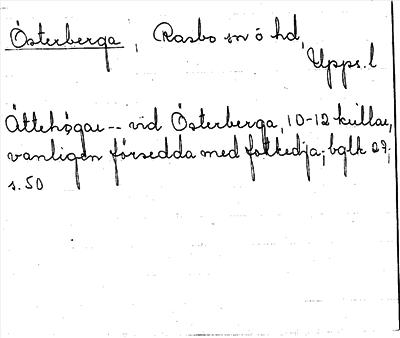 Österberga, Rasbo sn o hd,
Upps. l
Ättehögar -- vid Österberga, 10-12 kullar,
vanligen försedda med fotkedja; bglk 29;
s. 50